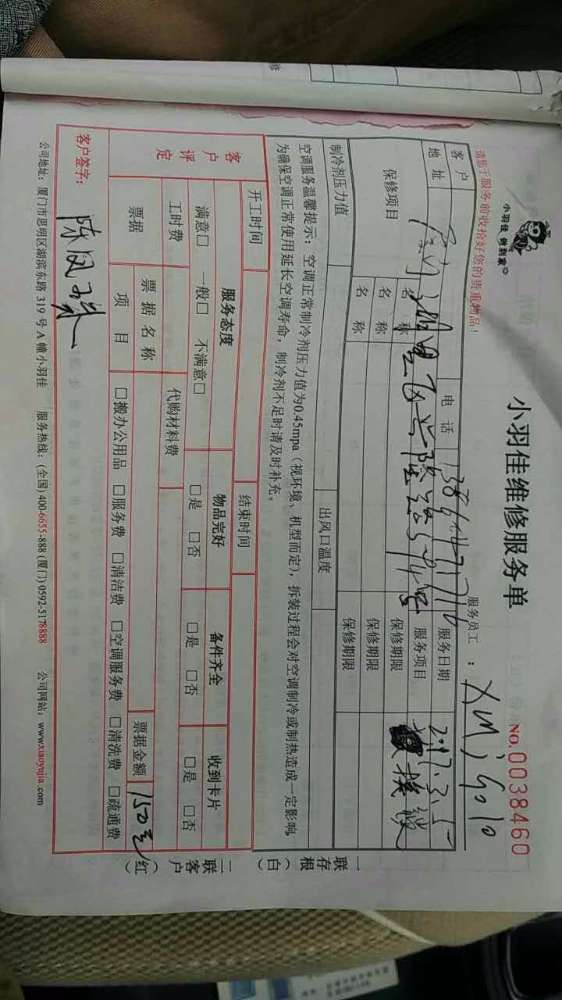 小羽佳 做到家
小羽佳维修服务单
NO.0038460
请您于服务前收拾好您的贵重物品！
服务员工：XMJG010
客户 电话 服务日期 2017.3.5
地址 服务项目
保修项目 名称 保修期限
名称 保修期限
名称 保修期限
制冷剂压力值 出风口温度
空调服务温馨提示：空调正常制冷剂压力值为0.45mpa（视环境、机型而定），拆装过程会对空调制冷或制热造成一定影响，
为确保空调正常使用延长空调寿命，制冷剂不足时请及时补充。
开工时间 结束时间
客户评定 服务态度 物品完好 备件齐全 收到卡片
满意□ 一般□ 不满意□ □是 □否 □是 □否 □是 □否
工时费 代购材料费
票据 票据名称 票据金额 150元
项目 □搬办公用品 □服务费 □清洁费 □空调服务费 □清洗费 □疏通费
客户签字：
公司地址：厦门市思明区湖滨东路 319 号 A 幢小羽佳 服务热线：(全国) 400-6655-888 (厦门) 0592-5178888 公司网站：www.xiaoyujia.com
一联存根（白）
二联客户（红）